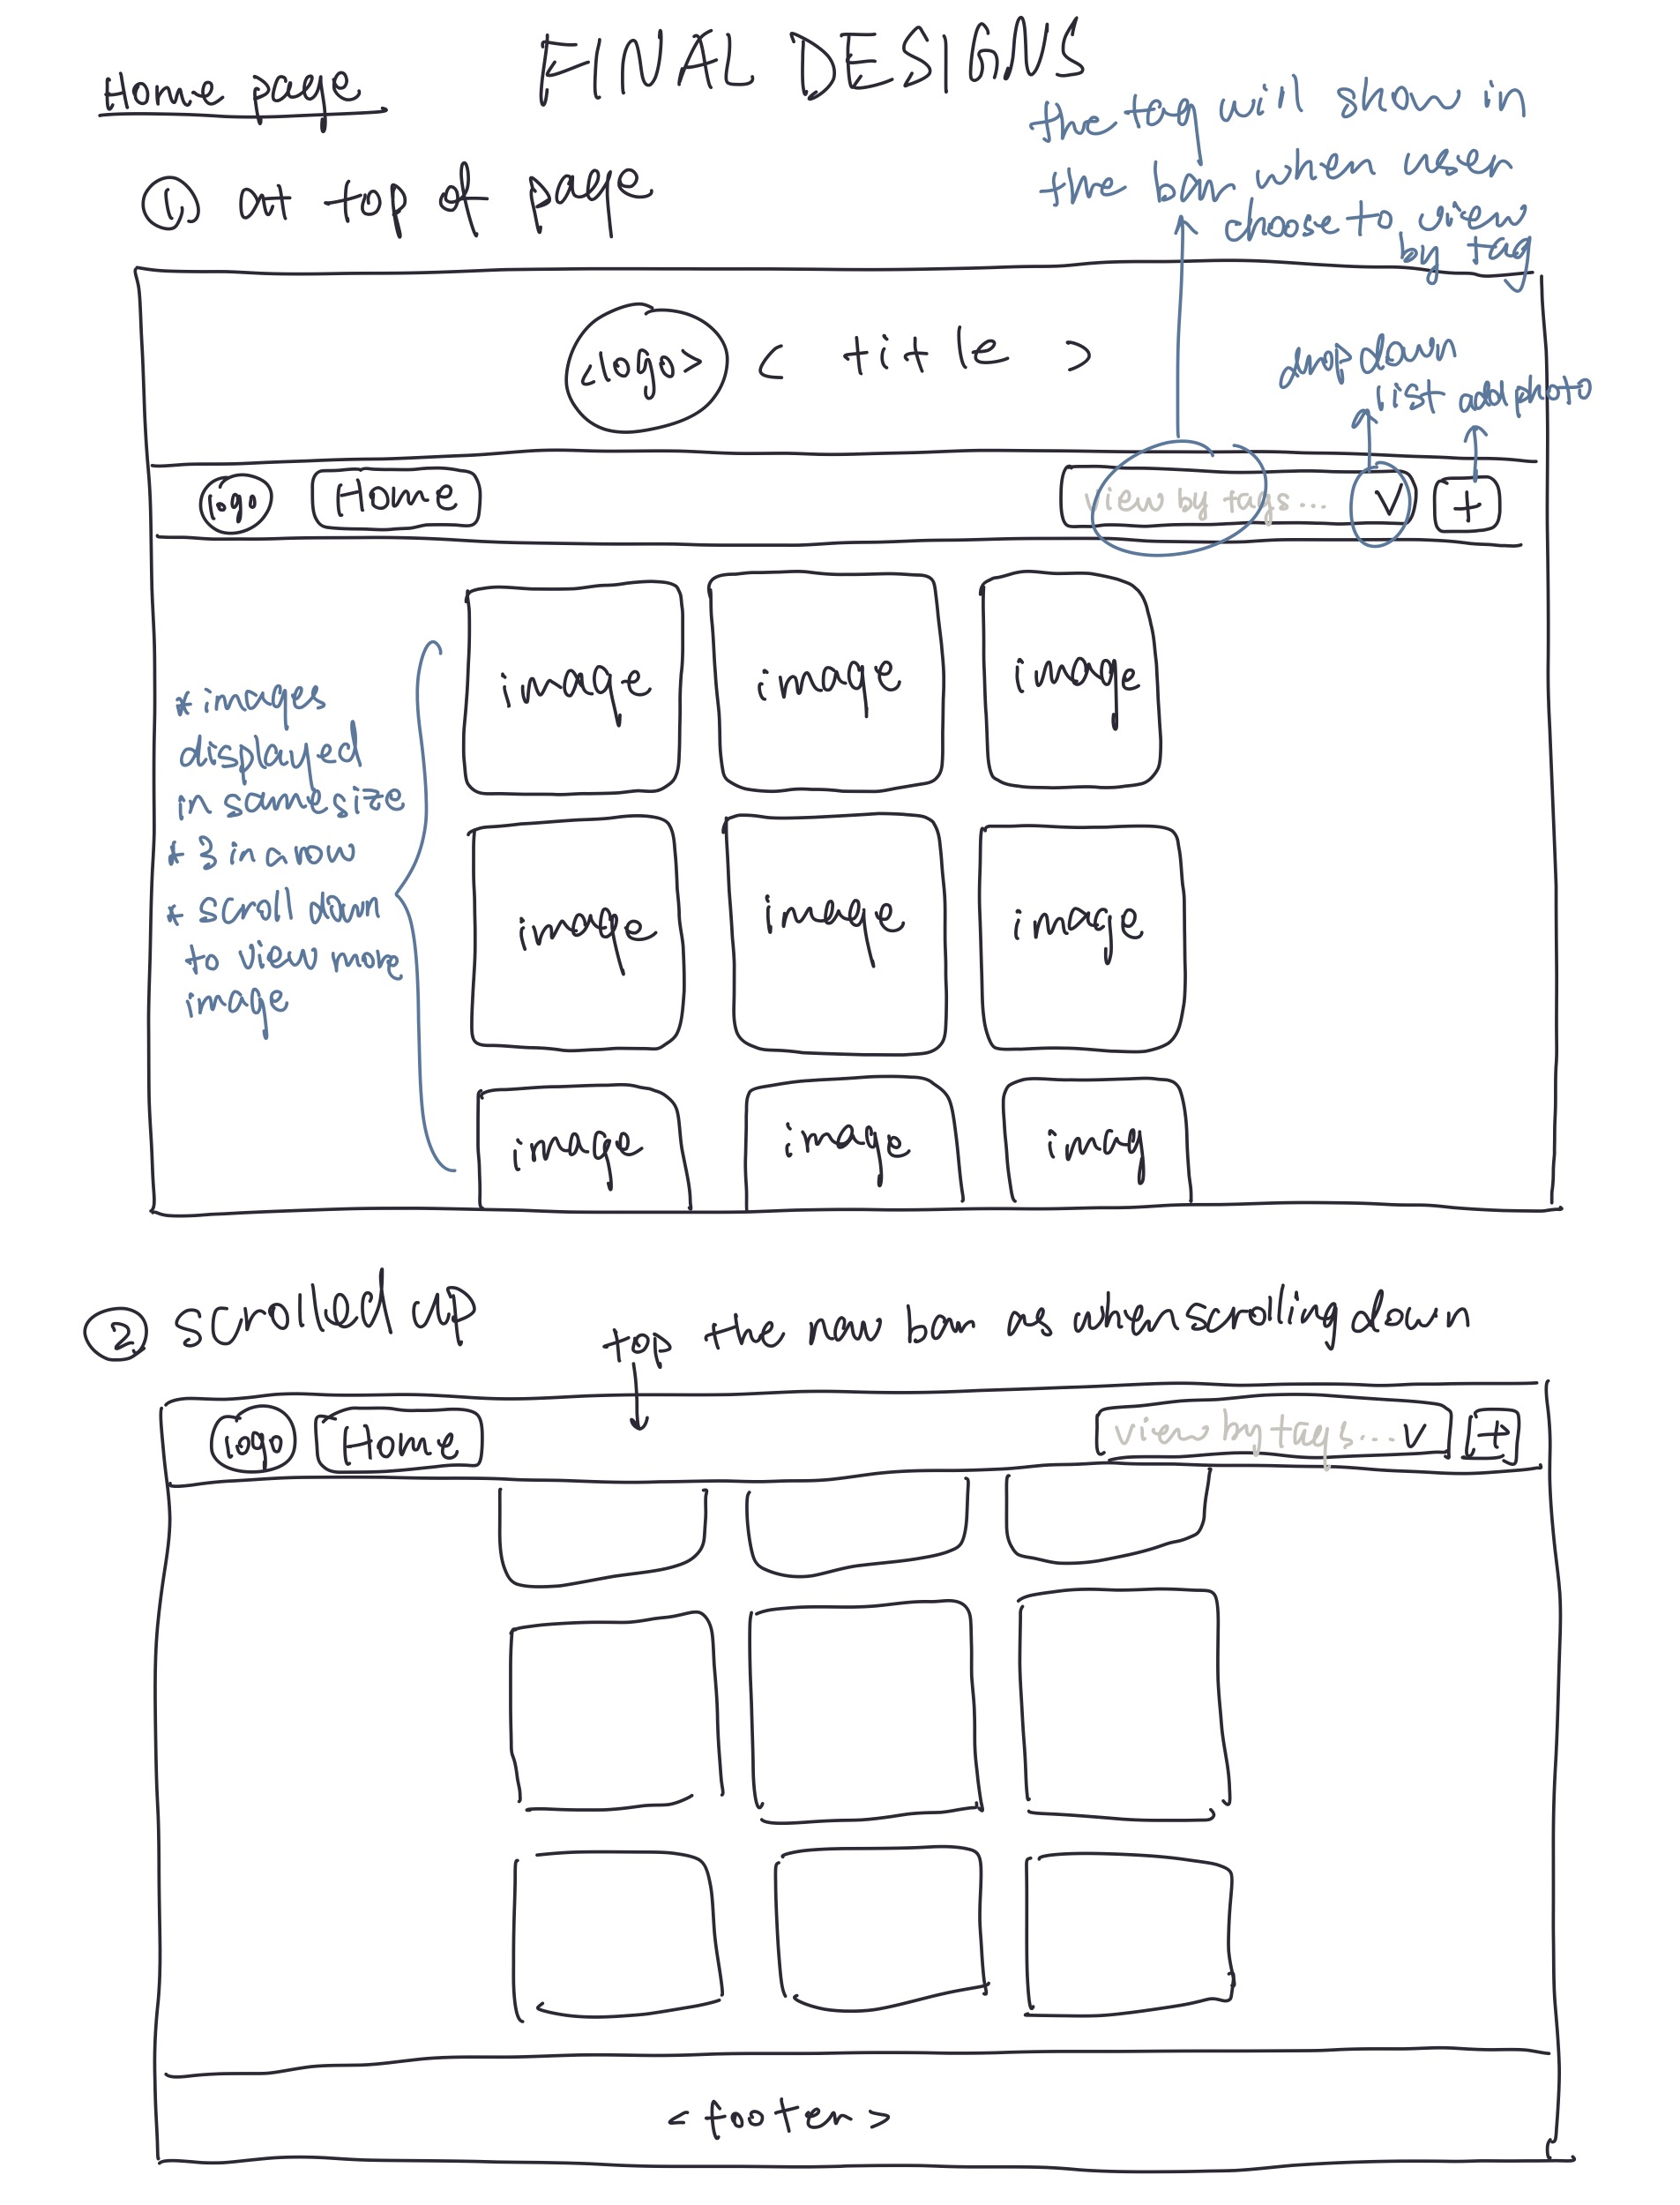 FINAL DESIGNS
Home page
① at top of page
the tag will show in
the bar when user
choose to view
by tag
<logo> < title >
drop down
list add photo
logo Home view by tags... V +
image image image
* images
displayed
in same size
* 3 in a row
* scroll down
to view more
image
image image image
image image imag
② scrolled up
top the nav bar as when scrolling down
logo Home view by tags... V +
<footer>